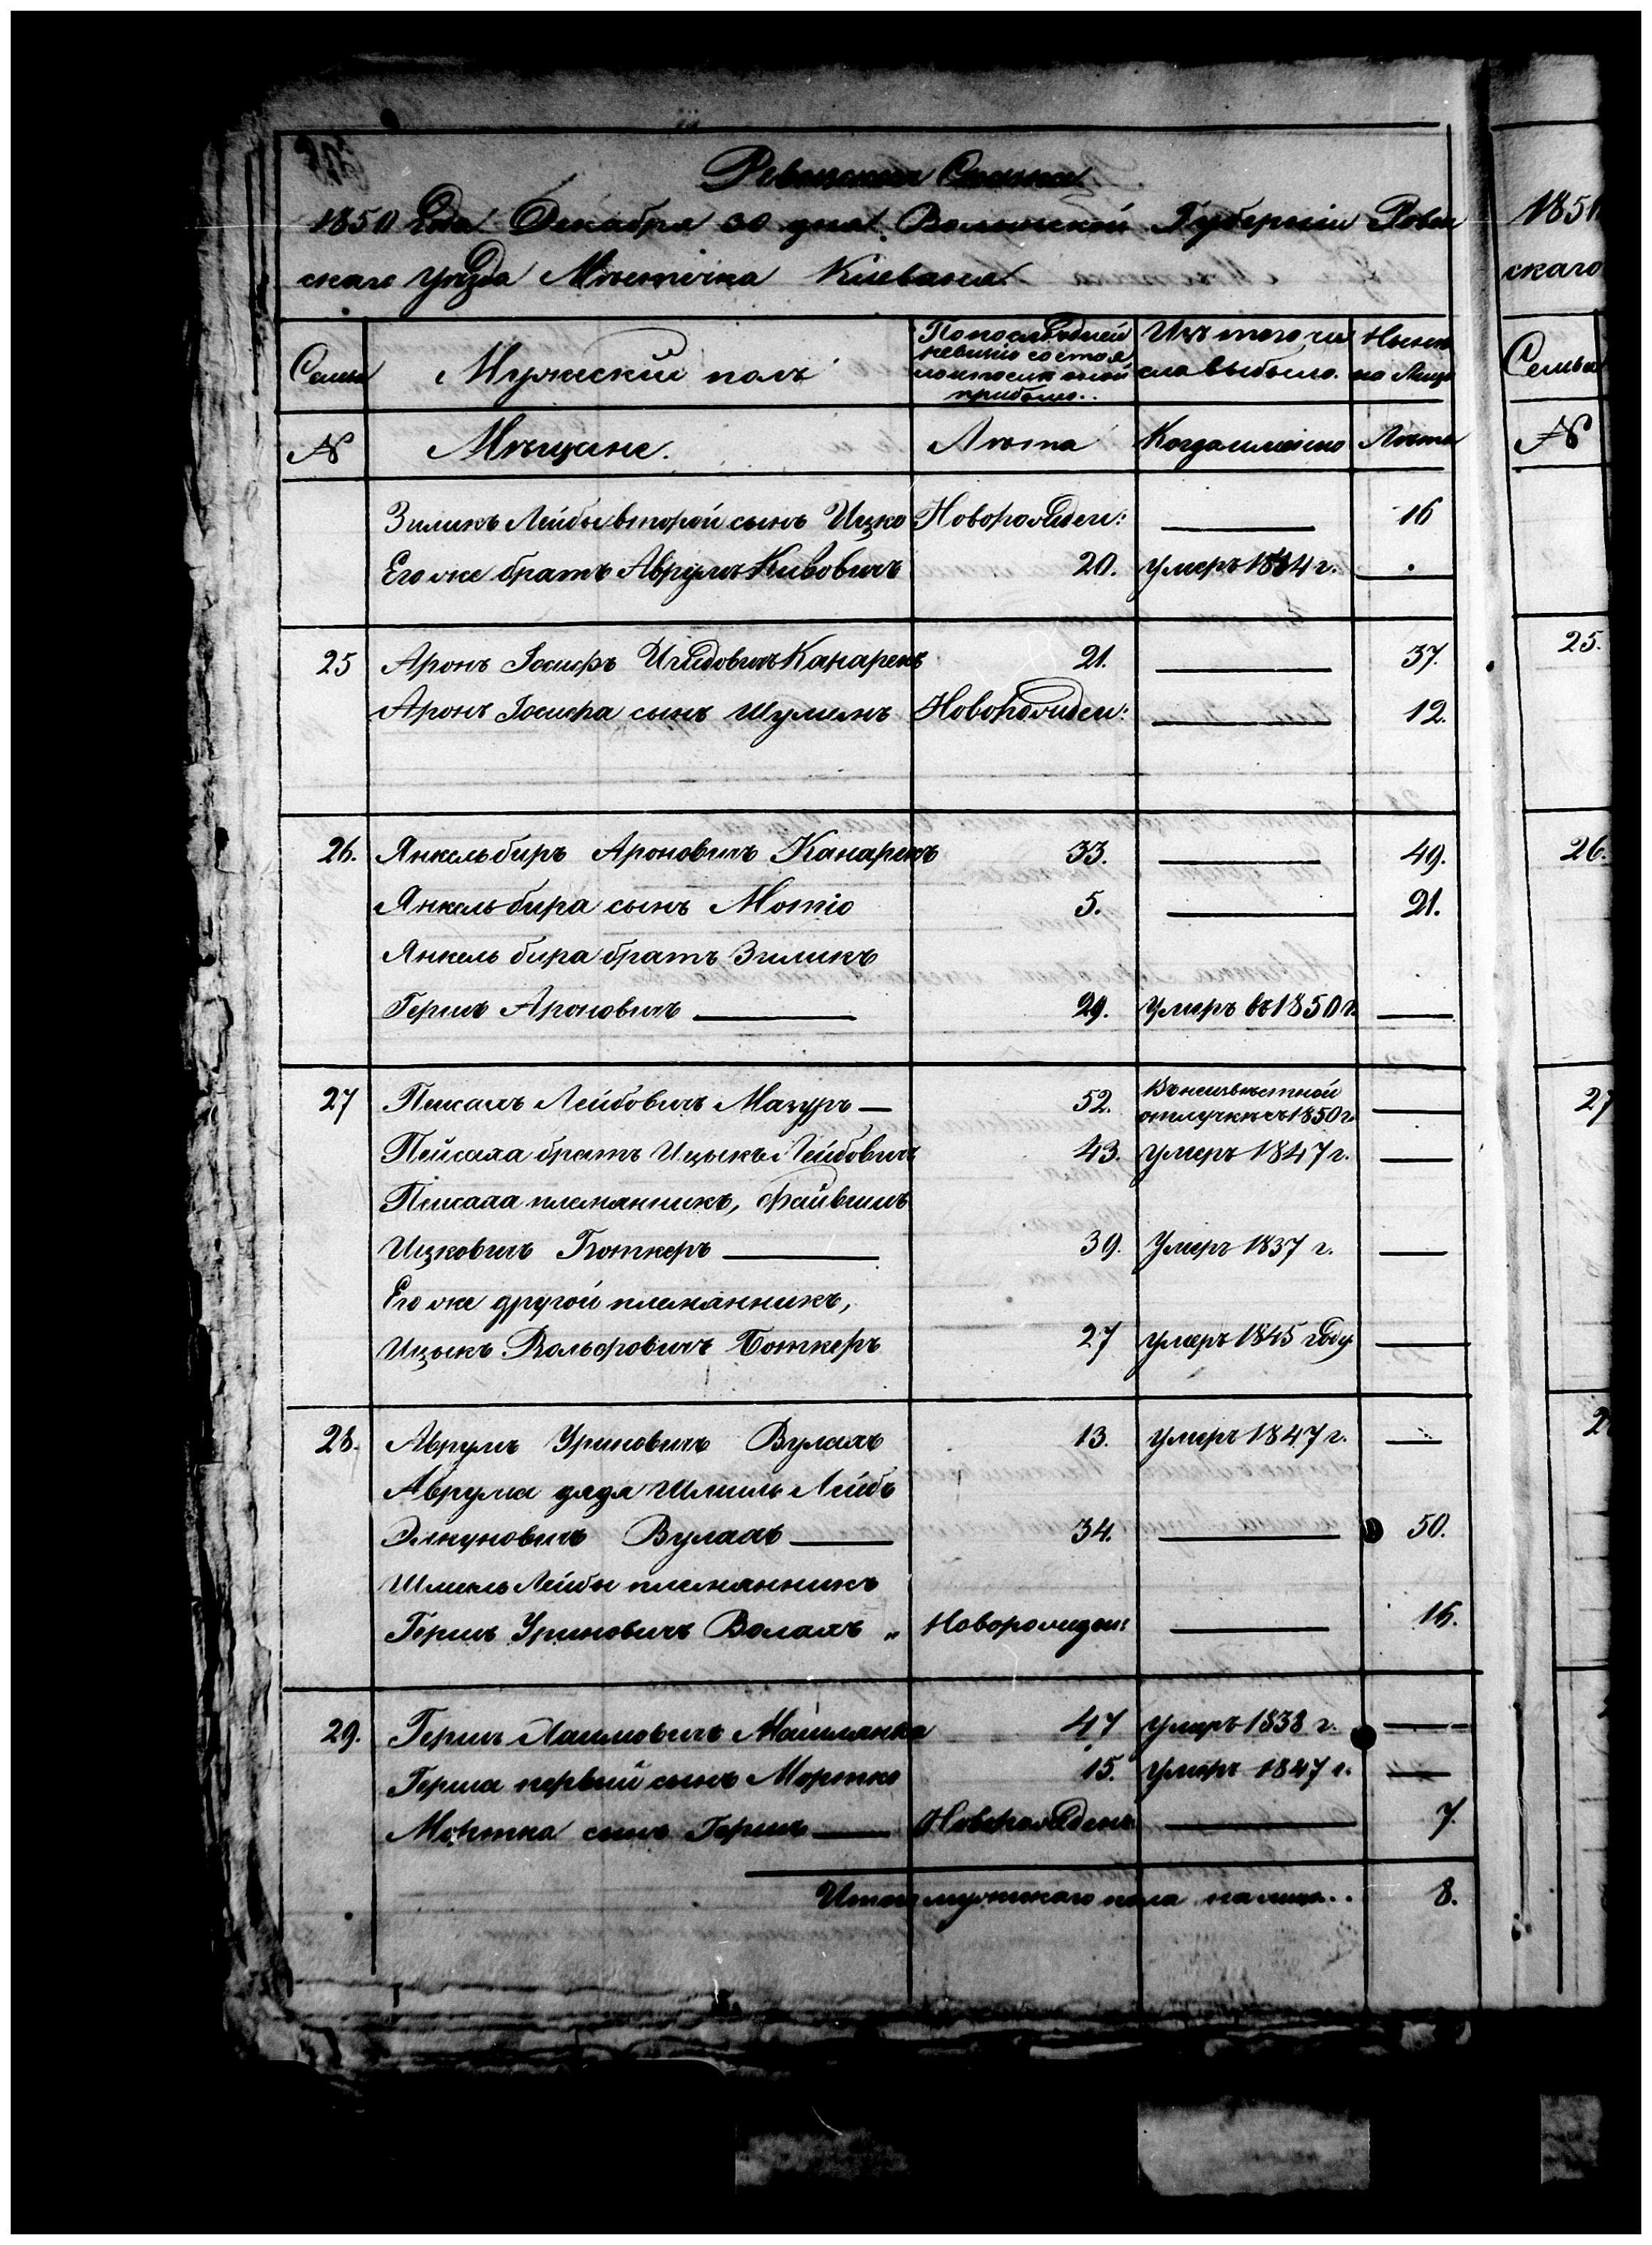 Ревизская Сказка
1850 Года Декабря 30 дня Волынской Губерніи Ровен
скаго Уѣзда Мѣстечка Клеваня
Семьи
Мужескій полъ
По последней
ревизіи состоя
ло и после оной
прибыло..
Изъ того чи
сла выбыло.
Нынѣ
на лицо
N
Мѣщане.
Лѣта
Когда именно
Лѣта
Зиликъ Лейбы второй сынъ Ицко Новорожден: 16
Его же братъ Аврумъ Кивовичъ 20. умеръ 1844 г.
25 Аронъ Іосифъ Канарекъ 21. 37.
Аронъ Іосифа сынъ Шулимъ Новорожден: 12.
26. Янкель биръ Ароновичъ Канарекъ 33. 49.
Янкель бира сынъ Мотіо 5. 21.
Янкель бира братъ Зиликъ
Гершъ Ароновичъ 29. умеръ въ 1850 г.
27 Пейсахъ Лейбовичъ Мазуръ 52. Въ неизвѣстной
отлучкѣ съ 1850 г.
Пейсаха братъ Ицыкъ Лейбовичъ 43. умеръ 1847 г.
Пейсаха племянникъ, Файвишъ
Ицковичъ Боткеръ 39. Умеръ 1837 г.
Его же другой племянникъ,
Ицыкъ Вольфовичъ Боткеръ 27 умеръ 1845 году
28. Аврумъ Уриновичъ Вулахъ 13. умеръ 1847 г.
Аврума дядя Шмиль Лейбъ
Элкуновичъ Вулахъ 34. 50.
Шмиль Лейбы племянникъ
Гершъ Уриновичъ Волахъ „ Новорожден: 16.
29. Гершъ Хаимовичъ Машлянка 47 умеръ 1838 г.
Герша первый сынъ Мортко 15. умеръ 1847 г.
Мортка сынъ Гершъ Новорожденъ 7.
Итого мужескаго пола на лицо.. 8.
1851
скаго
Семьи
N
25.
26.
27
2